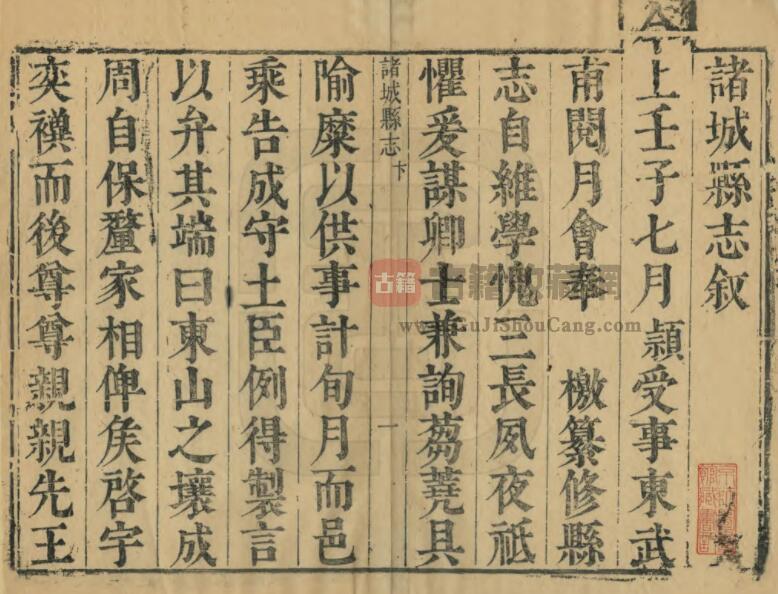 諸城縣志叙
上壬子七月穎受事東武
甫閱月會奉 檄纂修縣
志自維學愧三長夙夜祗
懼爰謀卿士兼詢蒭蕘具
諸城縣志 卞 一
隃糜以供事計旬月而邑
乘告成守土臣例得製言
以弁其端曰東山之壤成
周自保釐家相俾矦啓宇
奕禩而後尊尊親親先王
古籍
古籍收藏網
www.GuJiShouCang.com